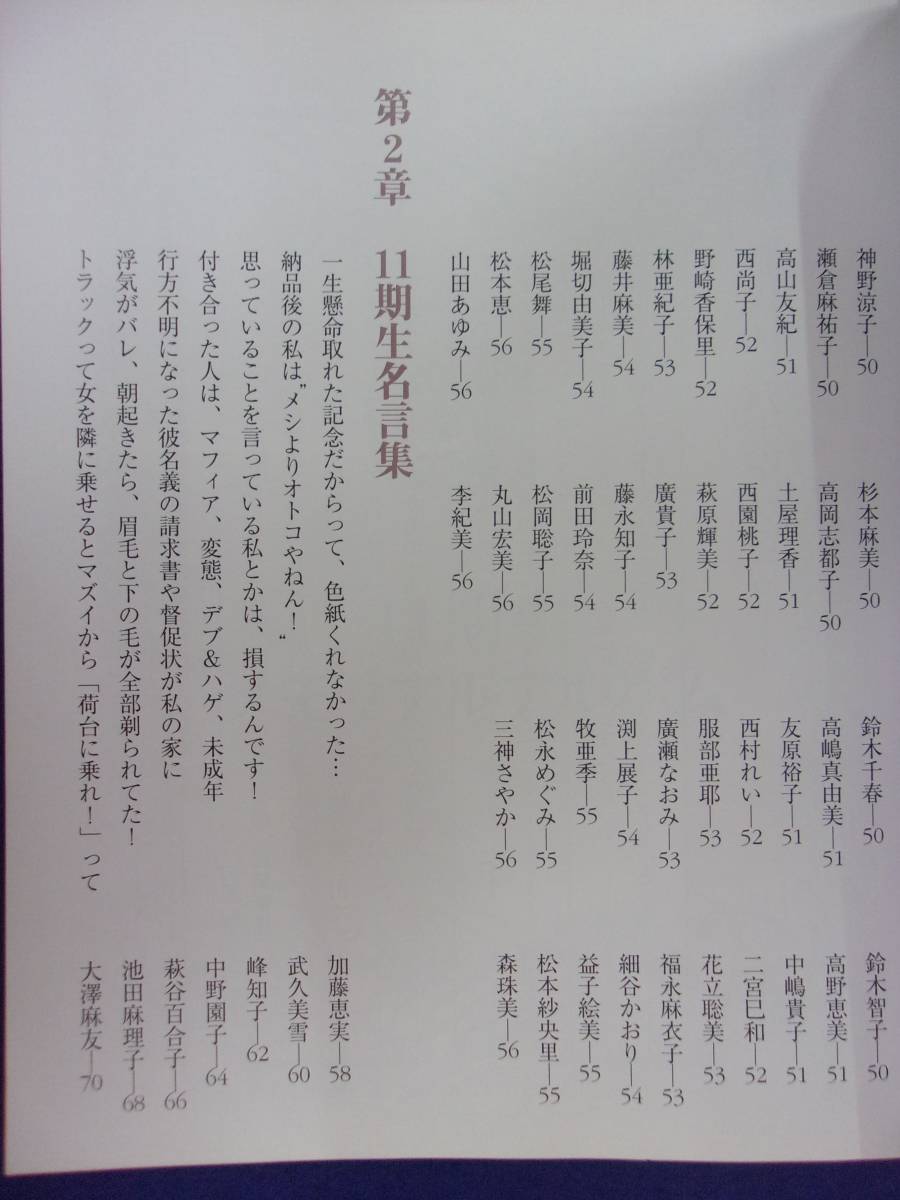 神野涼子―50
杉本麻美―50
鈴木千春―50
鈴木智子―50
瀬倉麻祐子―50
高岡志都子―50
高嶋真由美―51
高野恵美―51
高山友紀―51
土屋理香―51
友原裕子―51
中嶋貴子―51
西尚子―52
西園桃子―52
西村れい―52
二宮巳和―52
野崎香保里―52
萩原輝美―52
服部亜耶―53
花立聡美―53
林亜紀子―53
廣貴子―53
廣瀬なおみ―53
福永麻衣子―53
藤井麻美―54
藤永知子―54
渕上展子―54
細谷かおり―54
堀切由美子―54
前田玲奈―54
牧亜季―55
益子絵美―55
松尾舞―55
松岡聡子―55
松永めぐみ―55
松本紗央里―55
松本恵―56
丸山宏美―56
三神さやか―56
森珠美―56
山田あゆみ―56
李紀美―56
第2章 11期生名言集
一生懸命取れた記念だからって、色紙くれなかった… 加藤恵実―58
納品後の私は〝メシよりオトコやねん！〟 武久美雪―60
思っていることを言っている私とかは、損するんです！ 峰知子―62
付き合った人は、マフィア、変態、デブ＆ハゲ、未成年 中野園子―64
行方不明になった彼名義の請求書や督促状が私の家に 萩谷百合子―66
浮気がバレ、朝起きたら、眉毛と下の毛が全部剃られてた！ 池田麻理子―68
トラックって女を隣に乗せるとマズイから「荷台に乗れ！」って 大澤麻友―70